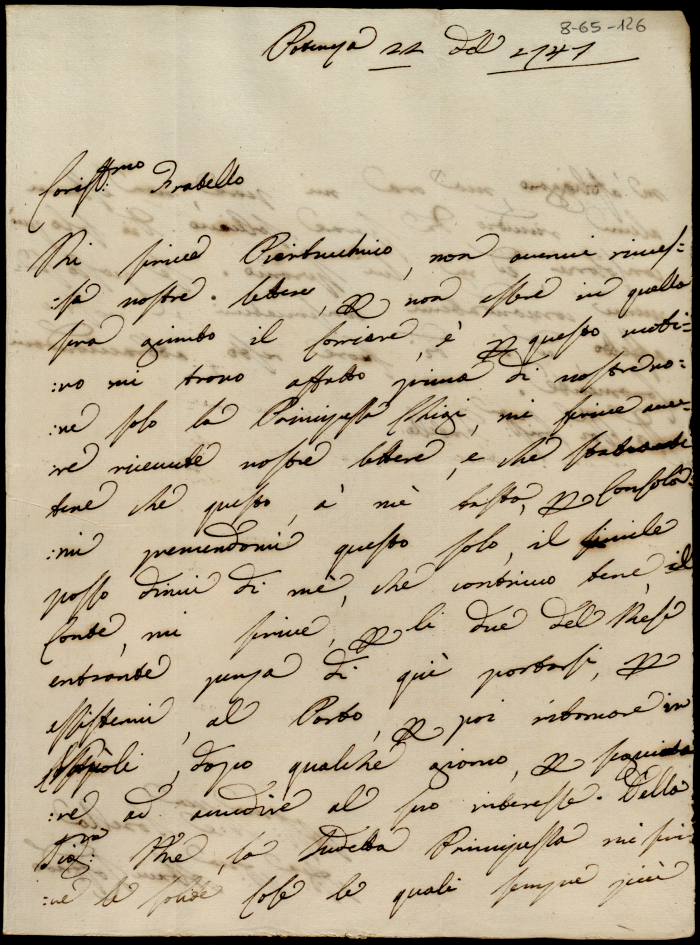 8-65-126
Potenza 22 del 1747
Cariss.mo Fratello
Mi scrive Pierbucchino, non avervi rices=
:sa vostre lettere, per non essere in quella
sera giunto il Corriere, e per questo moti=
:vo mi trovo affatto priva di vostre no=
:ve solo la Principessa Ghigi, mi scrive ave=
re ricevute vostre lettere, e che state
bene che questo, a me basta, per Consolar=
:mi premendomi questo solo, il simile
posso dirvi di me, che continuo bene, il
Conte, mi scrive, per li due del Mese
entrante pensa di quì portarsi, per
assistermi, al Parto, per poi ritornare in
dopo qualche giorno, per
:re ad accudire al suo interesse. Della
Sig.ra Mre, la sudetta Principessa mi scri=
:ve le solite Cose le quali sempre più